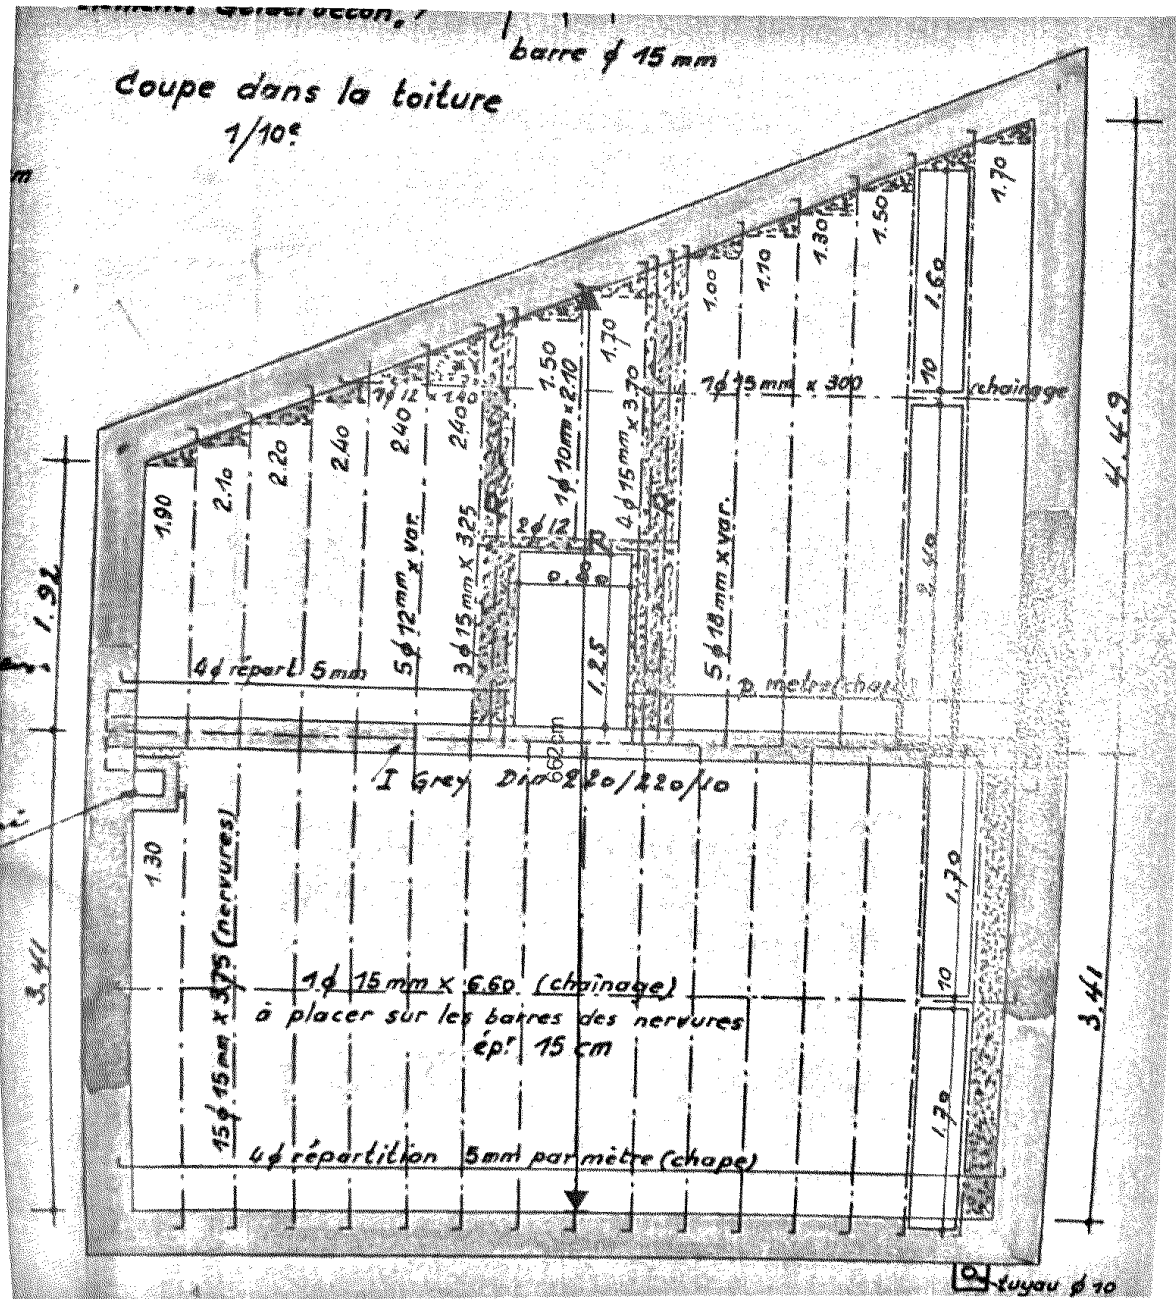 barre ϕ 15 mm
Coupe dans la toiture
1/10e
m
1.70
1.50
1.30
1.10
1.00
1.60
10
chaînage
1ϕ15mm x 300
4.49
1.70
1.50
1ϕ10mm x 2.10
4ϕ15mm x 3.70
1ϕ12 x 240
2.40
2.40
2.40
2.20
2.10
1.90
1.92
5ϕ12mm x var.
3ϕ15mm x 325
2ϕ12
R
0.80
1.25
5ϕ18mm x var.
2.40
4ϕ répart. 5mm
p. mètre (chape)
662cm
I Grey Din 220/220/10
1.30
15ϕ15mm x 375 (nervures)
3.41
1.70
10
1ϕ 15mm x 6.60 (chaînage)
à placer sur les barres des nervures
épr 15 cm
3.41
1.70
4ϕ répartition 5mm par mètre (chape)
tuyau ϕ 10